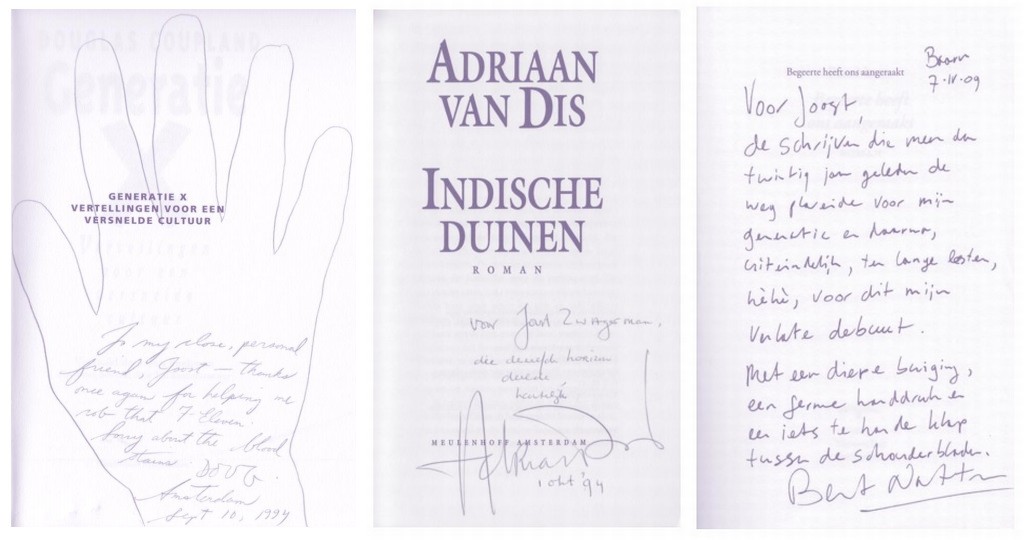 DOUGLAS COUPLAND
Generatie
X
GENERATIE X
VERTELLINGEN VOOR EEN
VERSNELDE CULTUUR
To my close, personal
friend, Joost — thanks
once again for helping me
rob that 7-Eleven.
Sorry about the blood
stains
DOUG.
Amsterdam
Sept 10, 1994
ADRIAAN
VAN DIS
INDISCHE
DUINEN
ROMAN
voor Joost Zwagerman,
die
hartelijk
MEULENHOFF AMSTERDAM
Adriaan
1 okt '94
Baarn
7-IV-09
Begeerte heeft ons aangeraakt
Voor Joost,
de schrijver die meer dan
twintig jaar geleden de
weg plaveide voor mijn
generatie en daarom,
uiteindelijk, ten lange lesten,
hèhè, voor dit mijn
verlate debuut.
Met een diepe buiging,
een ferme handdruk en
een iets te harde klap
tussen de schouderbladen.
Bert Natter